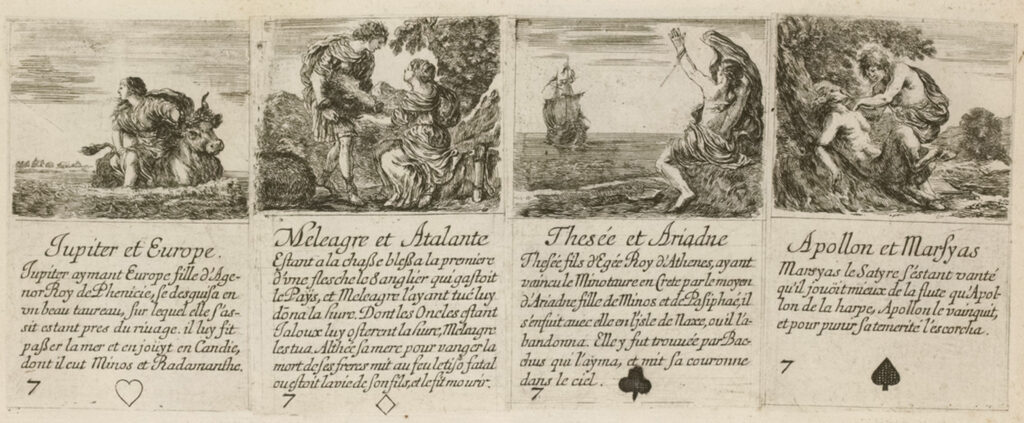 Jupiter et Europe.
Jupiter aymant Europe fille d'Age-
nor Roy de Phenicie, se desguisa en
vn beau taureau, sur lequel elle s'as-
sit estant pres du riuage. il luy fit
paßer la mer et en jouyt en Candie,
dont il eut Minos et Radamanthe.
7
Meleagre et Atalante
Estant a la chaße bleßa la premiere
d'vne flesche le Sanglier qui gastoit
le Païs, et Meleagre l'ayant tué luy
dona la hure. Dont les Oncles estant
Jaloux luy osterent la hure, Meleagre
les tua. Althée sa mere pour vanger la
mort de ses freres mit au feu le tisõ fatal
ou estoit la vie de son fils, et le fit mourir.
7
Thesée et Ariadne
Thesée fils d'Egée Roy d'Athenes, ayant
vaincu le Minotaure en Crete par le moyen
d'Ariadne fille de Minos et de Pasiphaé, il
s'enfuit auec elle en l'isle de Naxe, ou il l'a-
bandonna. Elle y fut trouuée par Bac-
chus qui l'ayma, et mit sa couronne
dans le ciel.
7
Apollon et Marsyas
Marsyas le Satyre s'estant vanté
qu'il jouoit mieux de la flute qu'Apol-
lon de la harpe, Apollon le vainquit,
et pour punir sa temerité l'escorcha.
7